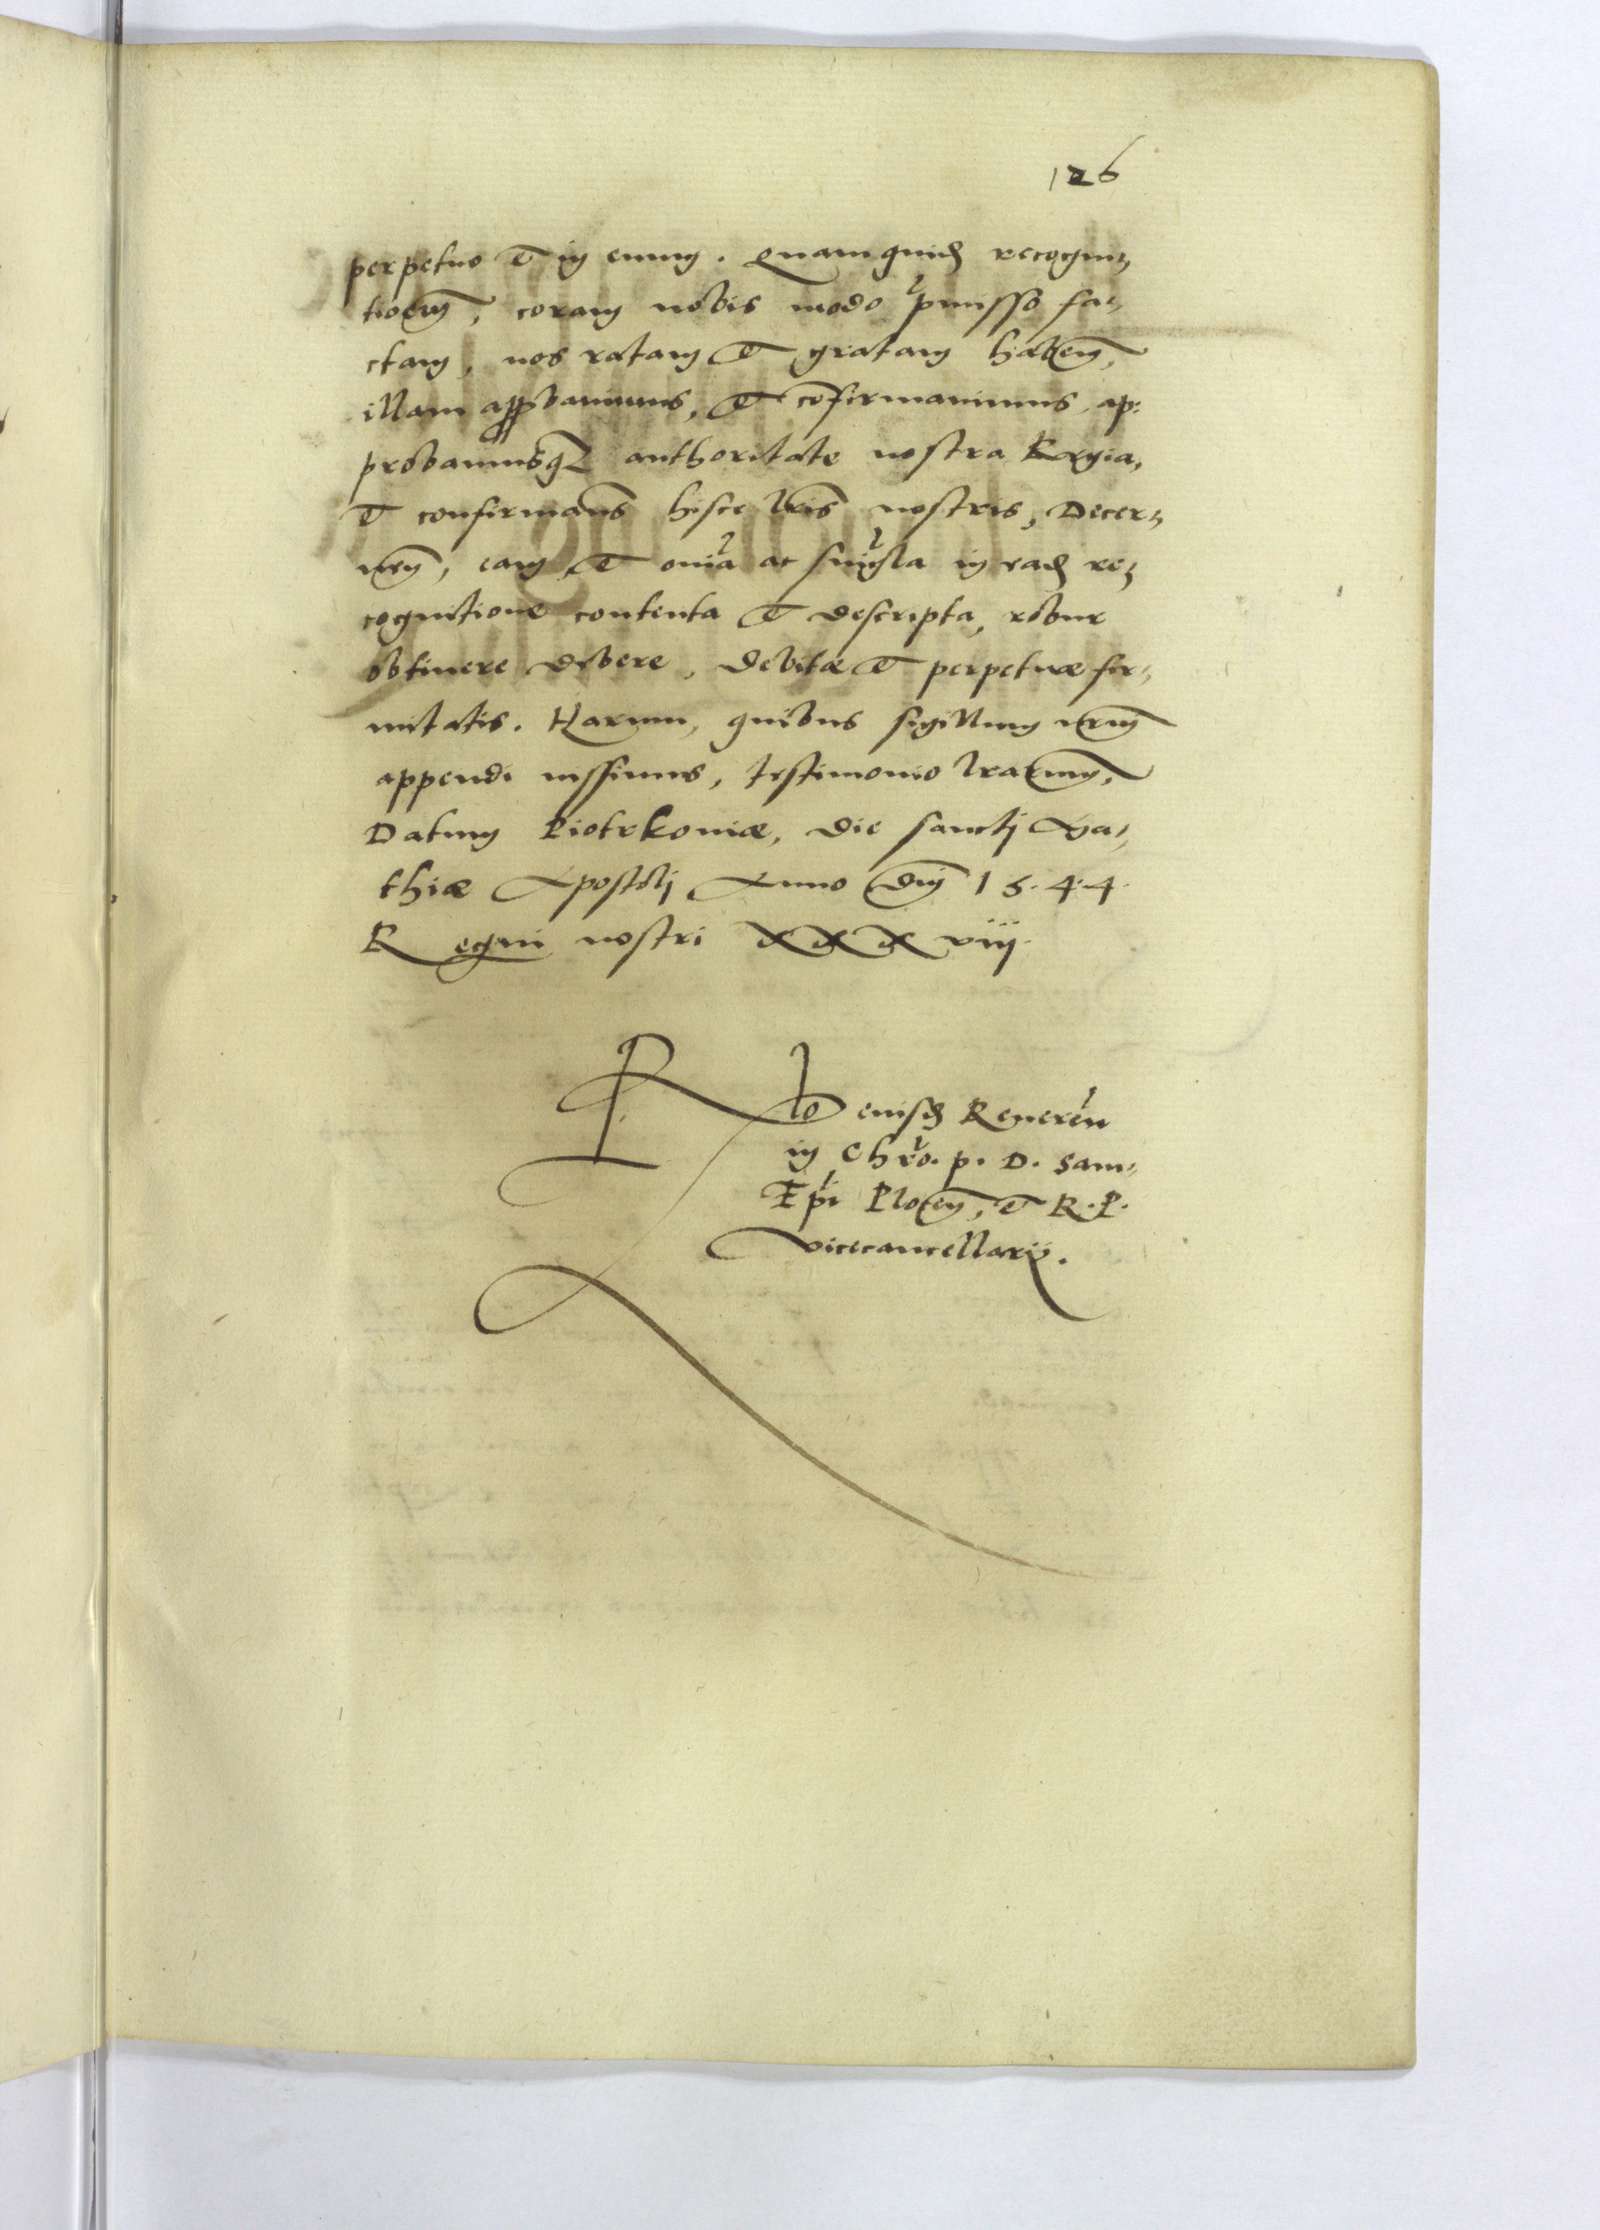 126
perpetuo et in euum. Quam quid recogni-
tioem, coram nobis modo pmisso fa-
ctam, nos ratam et gratam haben,
illam approbauimus, et confirmauimus, ap-
probamusq authoritate nostra Regia,
et confirmams hisce lris nostris, Decer-
nen, eam et omia ac singla in ead re-
cognitione contenta et descripta, robur
obtinere debere, debitæ et perpetuæ fir-
mitatis. Harum, quibus sigillum nrum
appendi iussimus, testimonio lrarum,
Datum Piotrkoviæ, die sancti Ma-
thiæ Apostoli Anno Dni 1544
Regni nostri xxxviij
Ro eiusd Reueren
in Chro. p. D. Sam-
Epi Plocen, et R. P.
vicecancellarij.